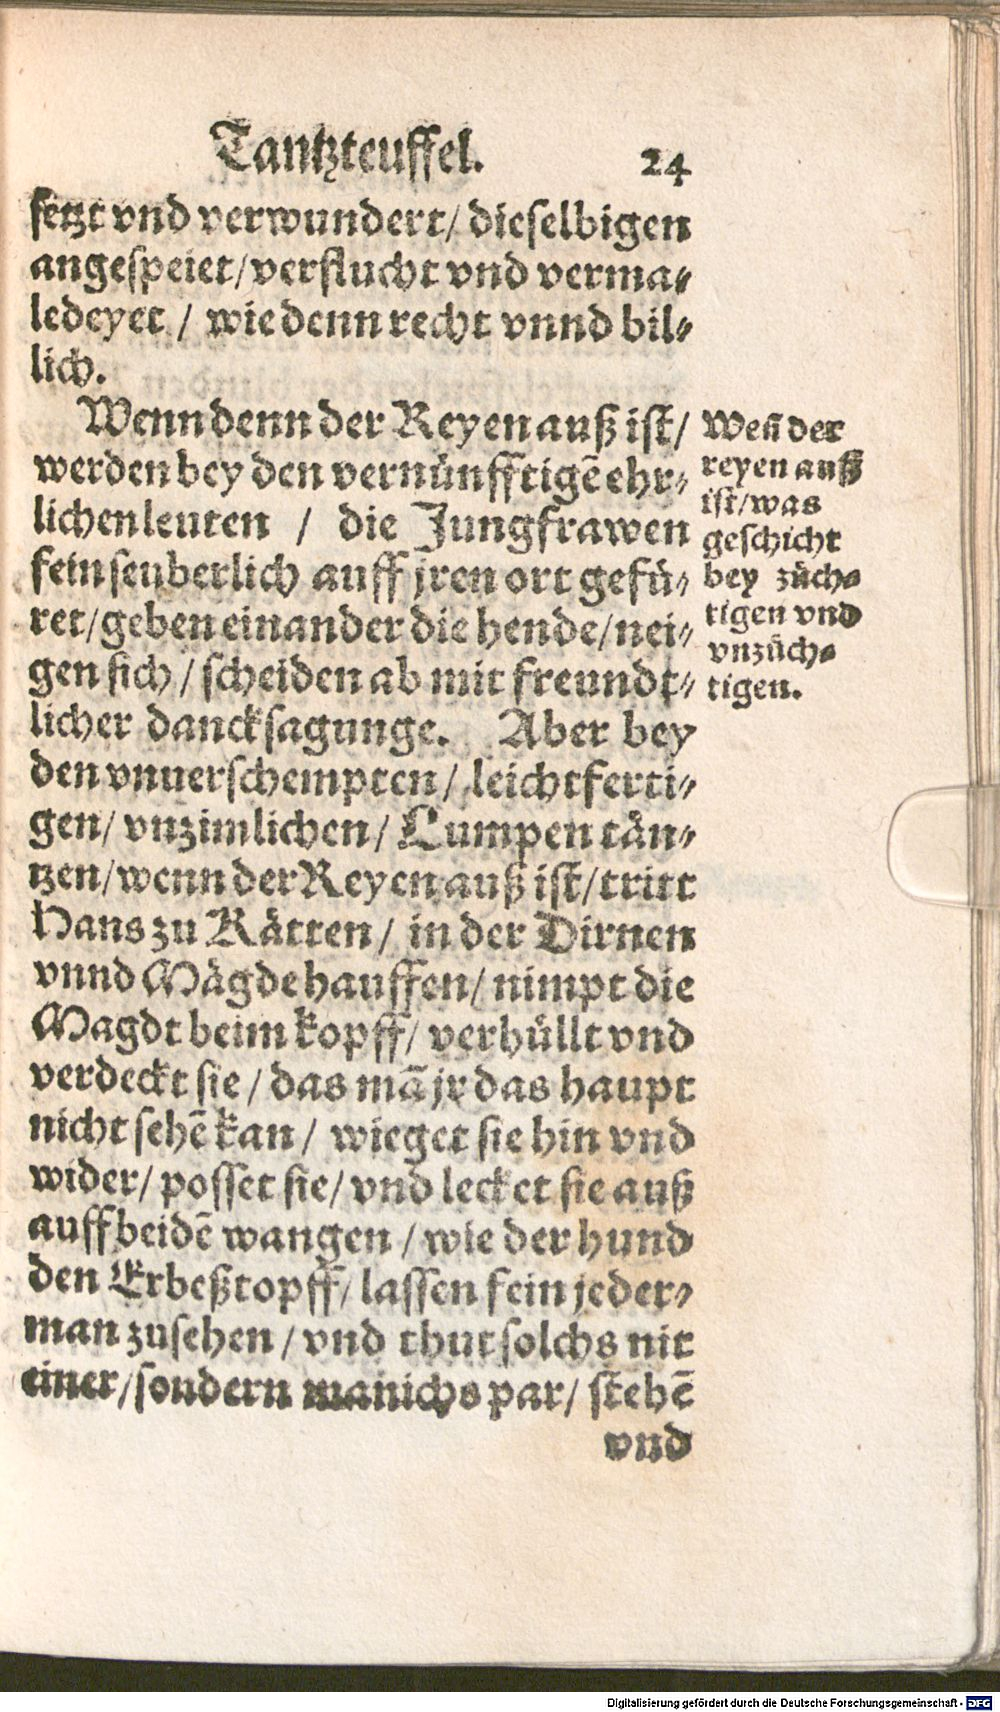 Tantzteuffel. 24
setzt vnd verwundert/ dieselbigen
angespeiet/verflucht vnd verma⸗
ledeyet / wie denn recht vnnd bil⸗
lich.
Wenn denn der Reyen auß ist/
werden bey den vernünfftigē ehr⸗
lichen leuten / die Jungfrawen
fein seuberlich auff jren ort gefü⸗
ret/geben einander die hende/nei⸗
gen sich / scheiden ab mit freundt⸗
licher dancksagunge. Aber bey
den vnuerschempten/ leichtferti⸗
gen/ vnzimlichen/ Lumpen tän⸗
tzen/wenn der Reyen auß ist/tritt
Hans zu Kätten/ in der Dirnen
vnnd Mägde hauffen/ nimpt die
Magdt beim kopff/ verhüllt vnd
verdeckt sie / das mā jr das haupt
nicht sehē kan / wieget sie hin vnd
wider/ posset sie/ vnd lecket sie auß
auff beidē wangen / wie der hund
den Erbeßtopff/ lassen fein jeder⸗
man zusehen / vnd thut solchs nit
einer/sondern manichs par/ stehē
vnd
Weñ der
reyen auß
ist/was
geschicht
bey züch⸗
tigen vnd
vnzüch⸗
tigen.
Digitalisierung gefördert durch die Deutsche Forschungsgemeinschaft - DFG